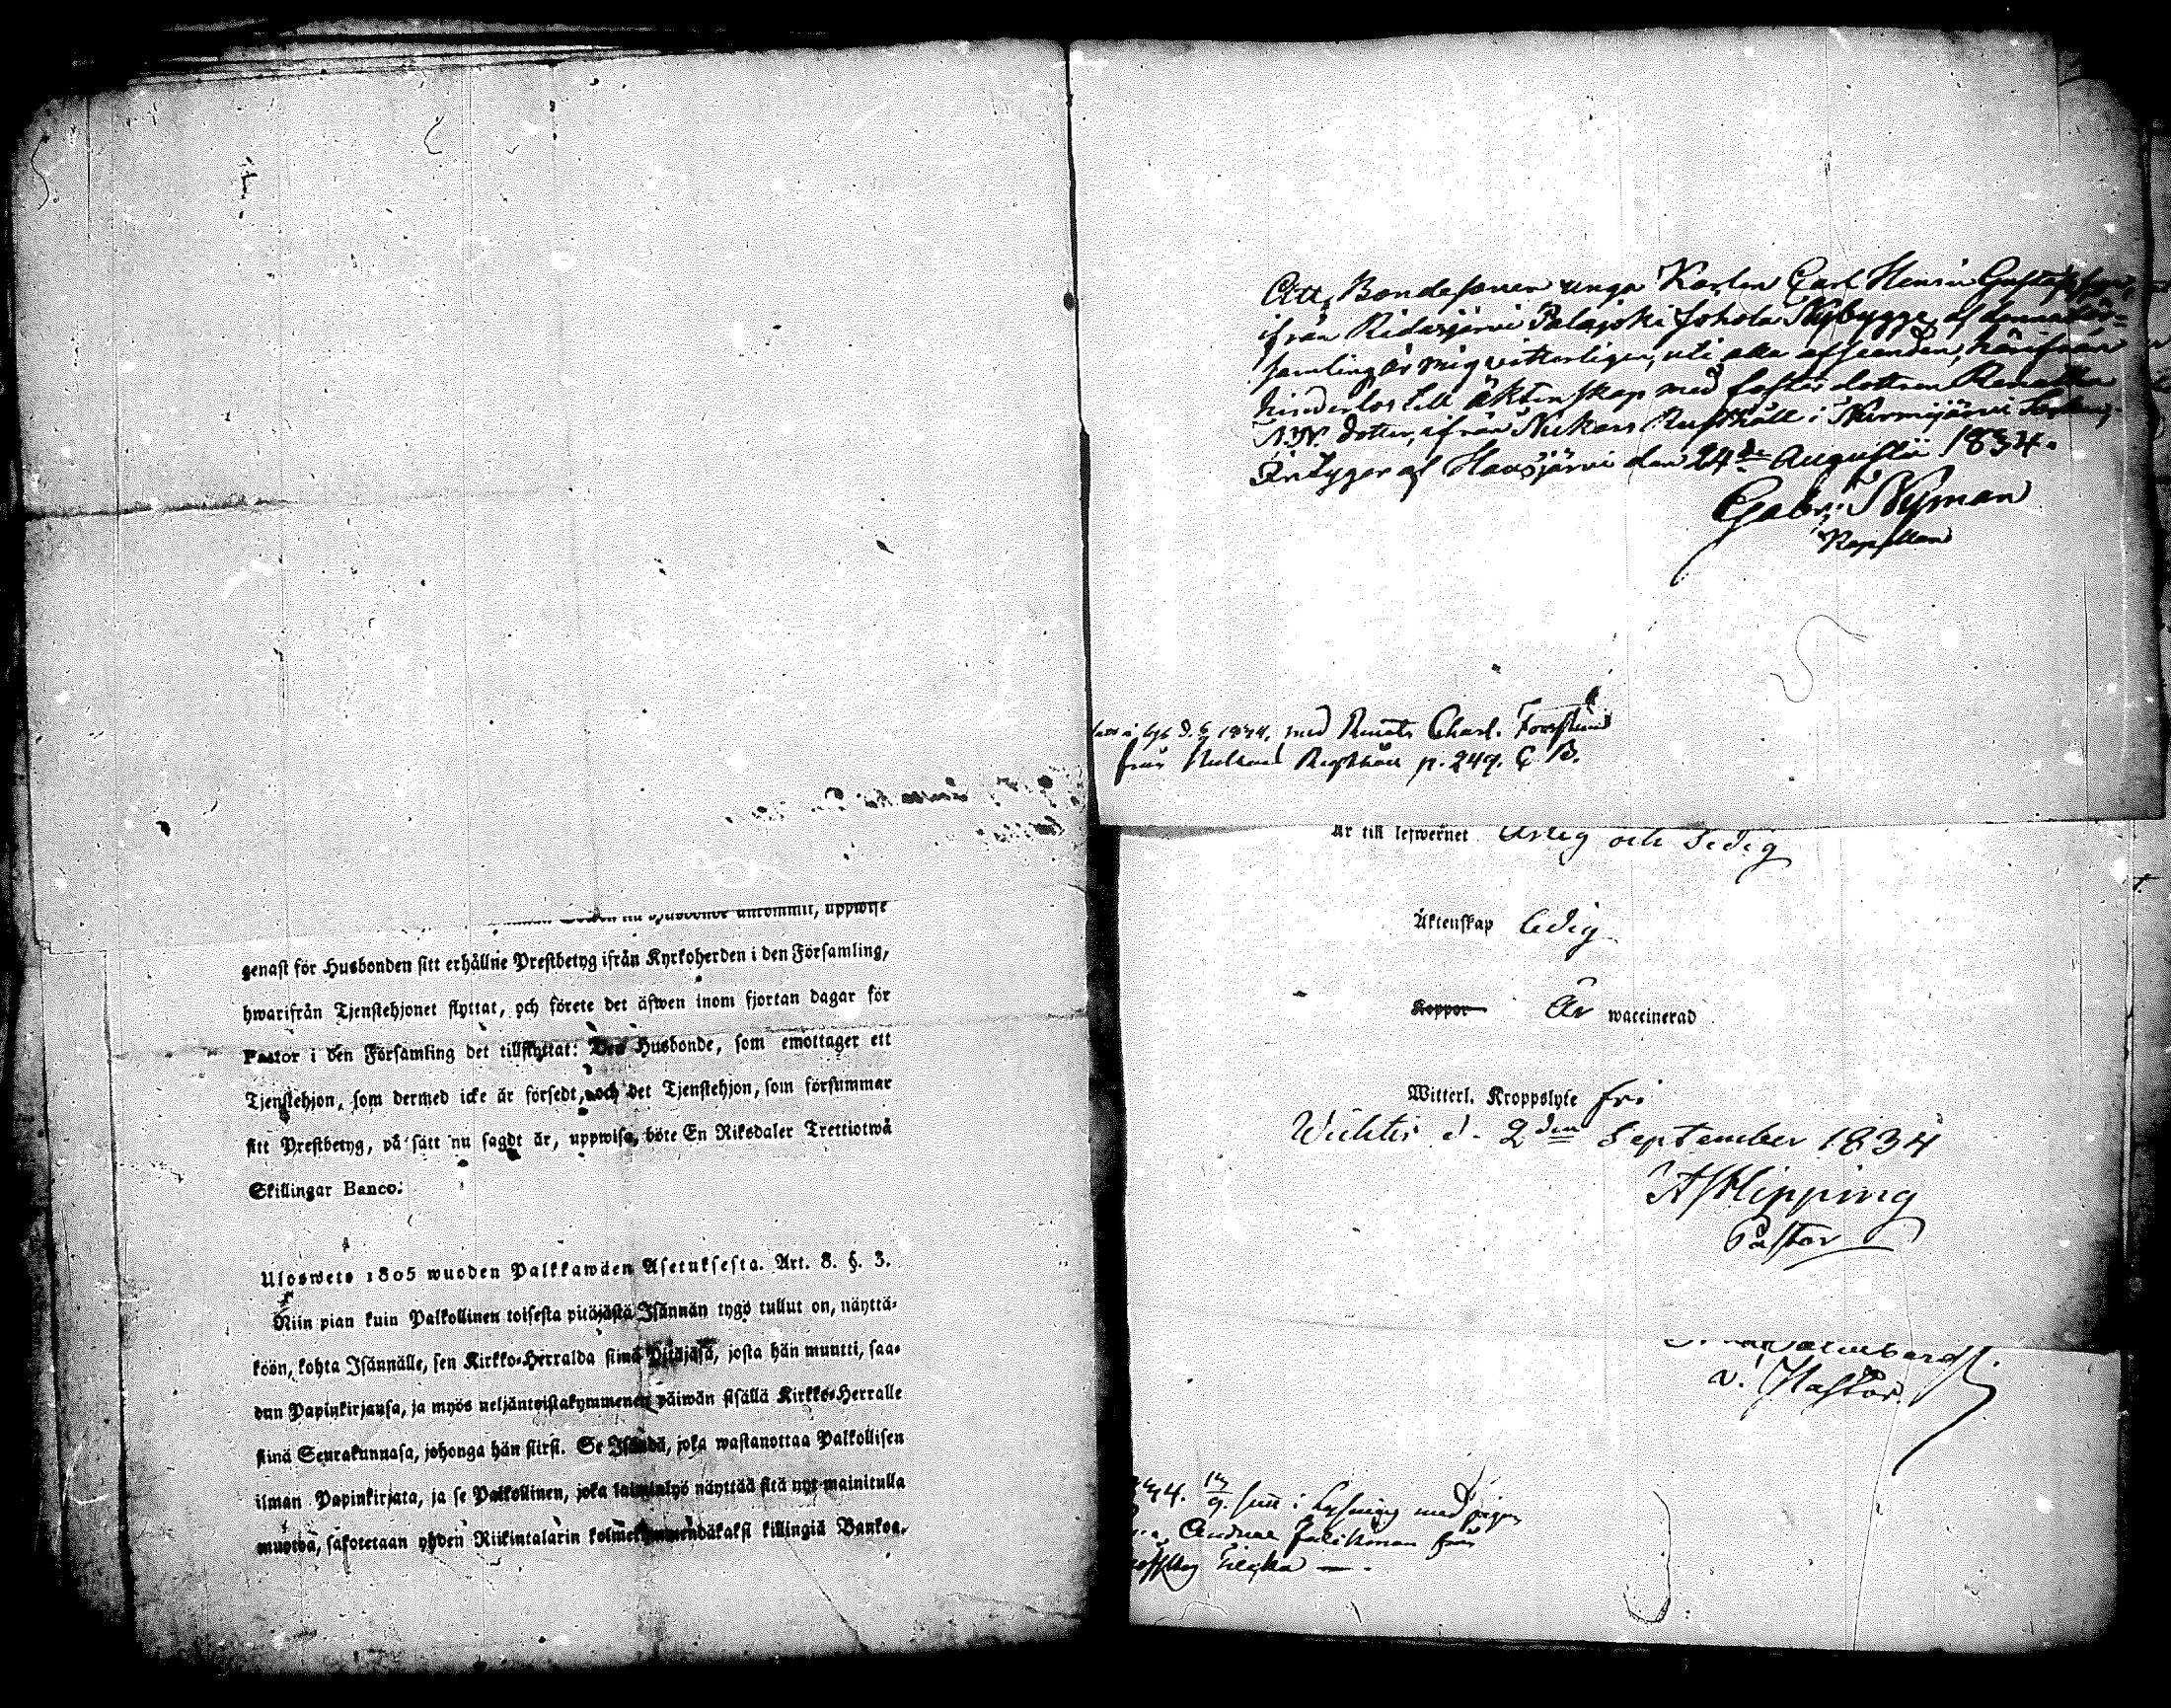 genast för Husbonden sitt erhållne Prestbetyg ifrån Kyrkoherden i den Församling,
hwarifrån Tjenstehjonet flyttat, och förete det äfwen inom fjortan dagar för
Pastor i den Församling det tillflyttat: Den Husbonde, som emottager ett
Tjenstehjon, som dermed icke är försedt, och det Tjenstehjon, som försummar
sitt Prestbetyg, på sätt nu sagdt är, uppwisa, böte En Riksdaler Trettiotwå
Skillingar Banco.
Uloswets 1805 wuoden Palkkawäen Asetuksesta. Art. 8. §. 3.
Niin pian kuin Palkollinen toisesta pitäjästä Isännän tygö tullut on, näyttä-
köön, kohta Isännälle, sen Kirkko-Herralda siinä Pitäjäsä, josta hän muutti, saa-
dun Papinkirjansa, ja myös neljäntoistakymmenen päiwän sisällä Kirkko-Herralle
siinä Seurakunnasa, johonga hän siirsi. Se Isändä, joka wastanottaa Palkollisen
ilman Papinkirjata, ja se Palkollinen, joka laiminlyö näyttää sitä nyt mainitulla
muotoa, sakotetaan yhden Riikintalarin kolmekymmendäkaksi killingiä Bankoa.
Att Bondesonen unga Karlen Carl Henric Gustafsson,
ifrån Ridasjärvi Palajoki Nybygge af denna För-
samling är mig vitterligen, uti alla afseenden, härifrån
hinderlös till äktenskap med foster dottren Renatha
N.N. dotter, ifrån Nukars Rusthåll i Nurmijärvi
Intygar af Hausjärvi den 24de Augusti 1834.
Gabr. Nyman
Kapellan
1834, med Renata Charl. Forsslund
från Nukars Rusthåll p. 249. C. B.
Är till lefwernet Ärlig och Sedig
Äktenskap Ledig
Koppor Är waccinerad
Witterl. Kroppslyte fri
Wichtis d. 2den September 1834
A J Hipping
Pastor
v. Pastor.
i Lysning med pigan
från